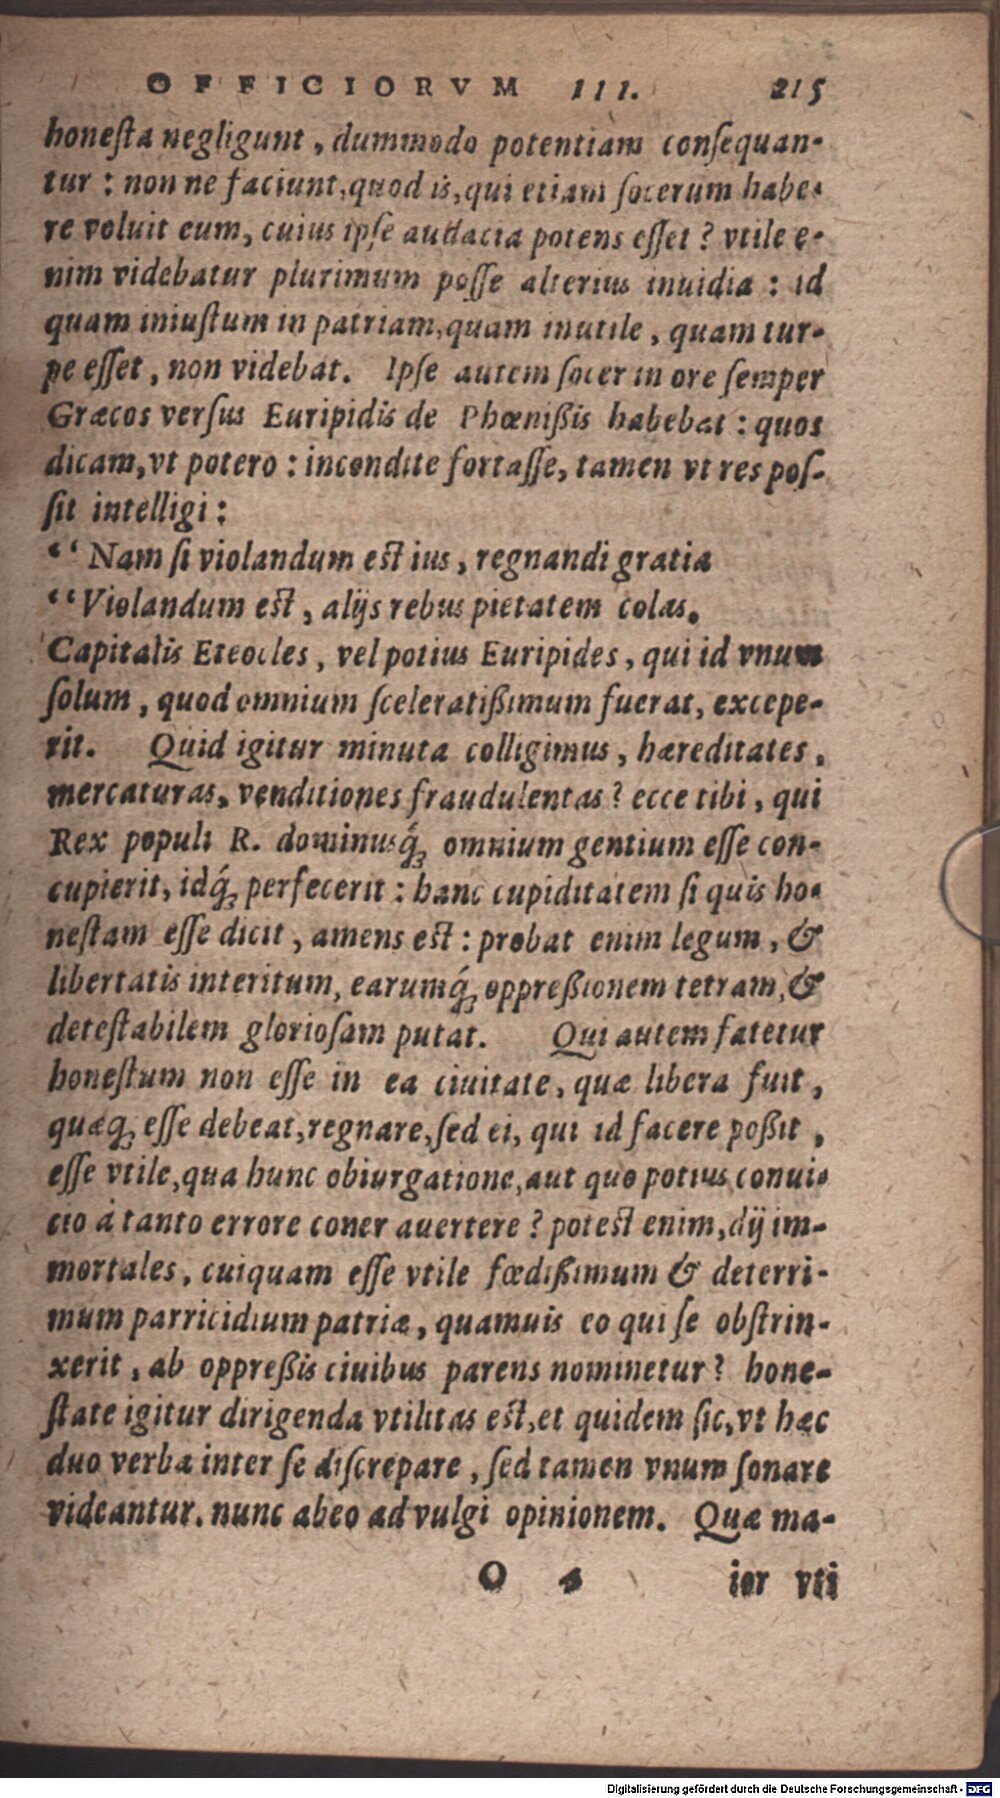 OFFICIORVM III. 215
honeſta negligunt, dummodo potentiam conſequan-
tur: non ne faciunt, quod is, qui etiam ſocerum habe-
re voluit eum, cuius ipſe audacia potens eſſet? vtile e-
nim videbatur plurimum poſſe alterius inuidia: id
quam iniuſtum in patriam, quam inutile, quam tur-
pe eſſet, non videbat. Ipſe autem ſocer in ore ſemper
Græcos verſus Euripidis de Phœnißis habebat: quos
dicam, vt potero: incondite fortaſſe, tamen vt res poſ-
ſit intelligi:
“Nam ſi violandum eſt ius, regnandi gratia
“Violandum eſt, alijs rebus pietatem colas.
Capitalis Eteocles, vel potius Euripides, qui id vnum
ſolum, quod omnium ſceleratißimum fuerat, excepe-
rit. Quid igitur minuta colligimus, hæreditates,
mercaturas, venditiones fraudulentas? ecce tibi, qui
Rex populi R. dominusq́ꝫ omnium gentium eſſe con-
cupierit, idq́ꝫ perfecerit: hanc cupiditatem ſi quis ho-
neſtam eſſe dicit, amens eſt: probat enim legum, &
libertatis interitum, earumq́ꝫ oppreßionem tetram, &
deteſtabilem glorioſam putat. Qui autem fatetur
honeſtum non eſſe in ea ciuitate, quæ libera fuit,
quæqꝫ eſſe debeat, regnare, ſed ei, qui id facere poßit,
eſſe vtile, qua hunc obiurgatione, aut quo potius conui-
cio à tanto errore coner auertere? poteſt enim, dij im-
mortales, cuiquam eſſe vtile fœdißimum & deterri-
mum parricidium patriæ, quamuis eo qui ſe obſtrin-
xerit, ab oppreßis ciuibus parens nominetur? hone-
ſtate igitur dirigenda vtilitas eſt, et quidem ſic, vt hæc
duo verba inter ſe diſcrepare, ſed tamen vnum ſonare
videantur. nunc abeo ad vulgi opinionem. Quæ ma-
O 4 ior vti
Digitalisierung gefördert durch die Deutsche Forschungsgemeinschaft - DFG